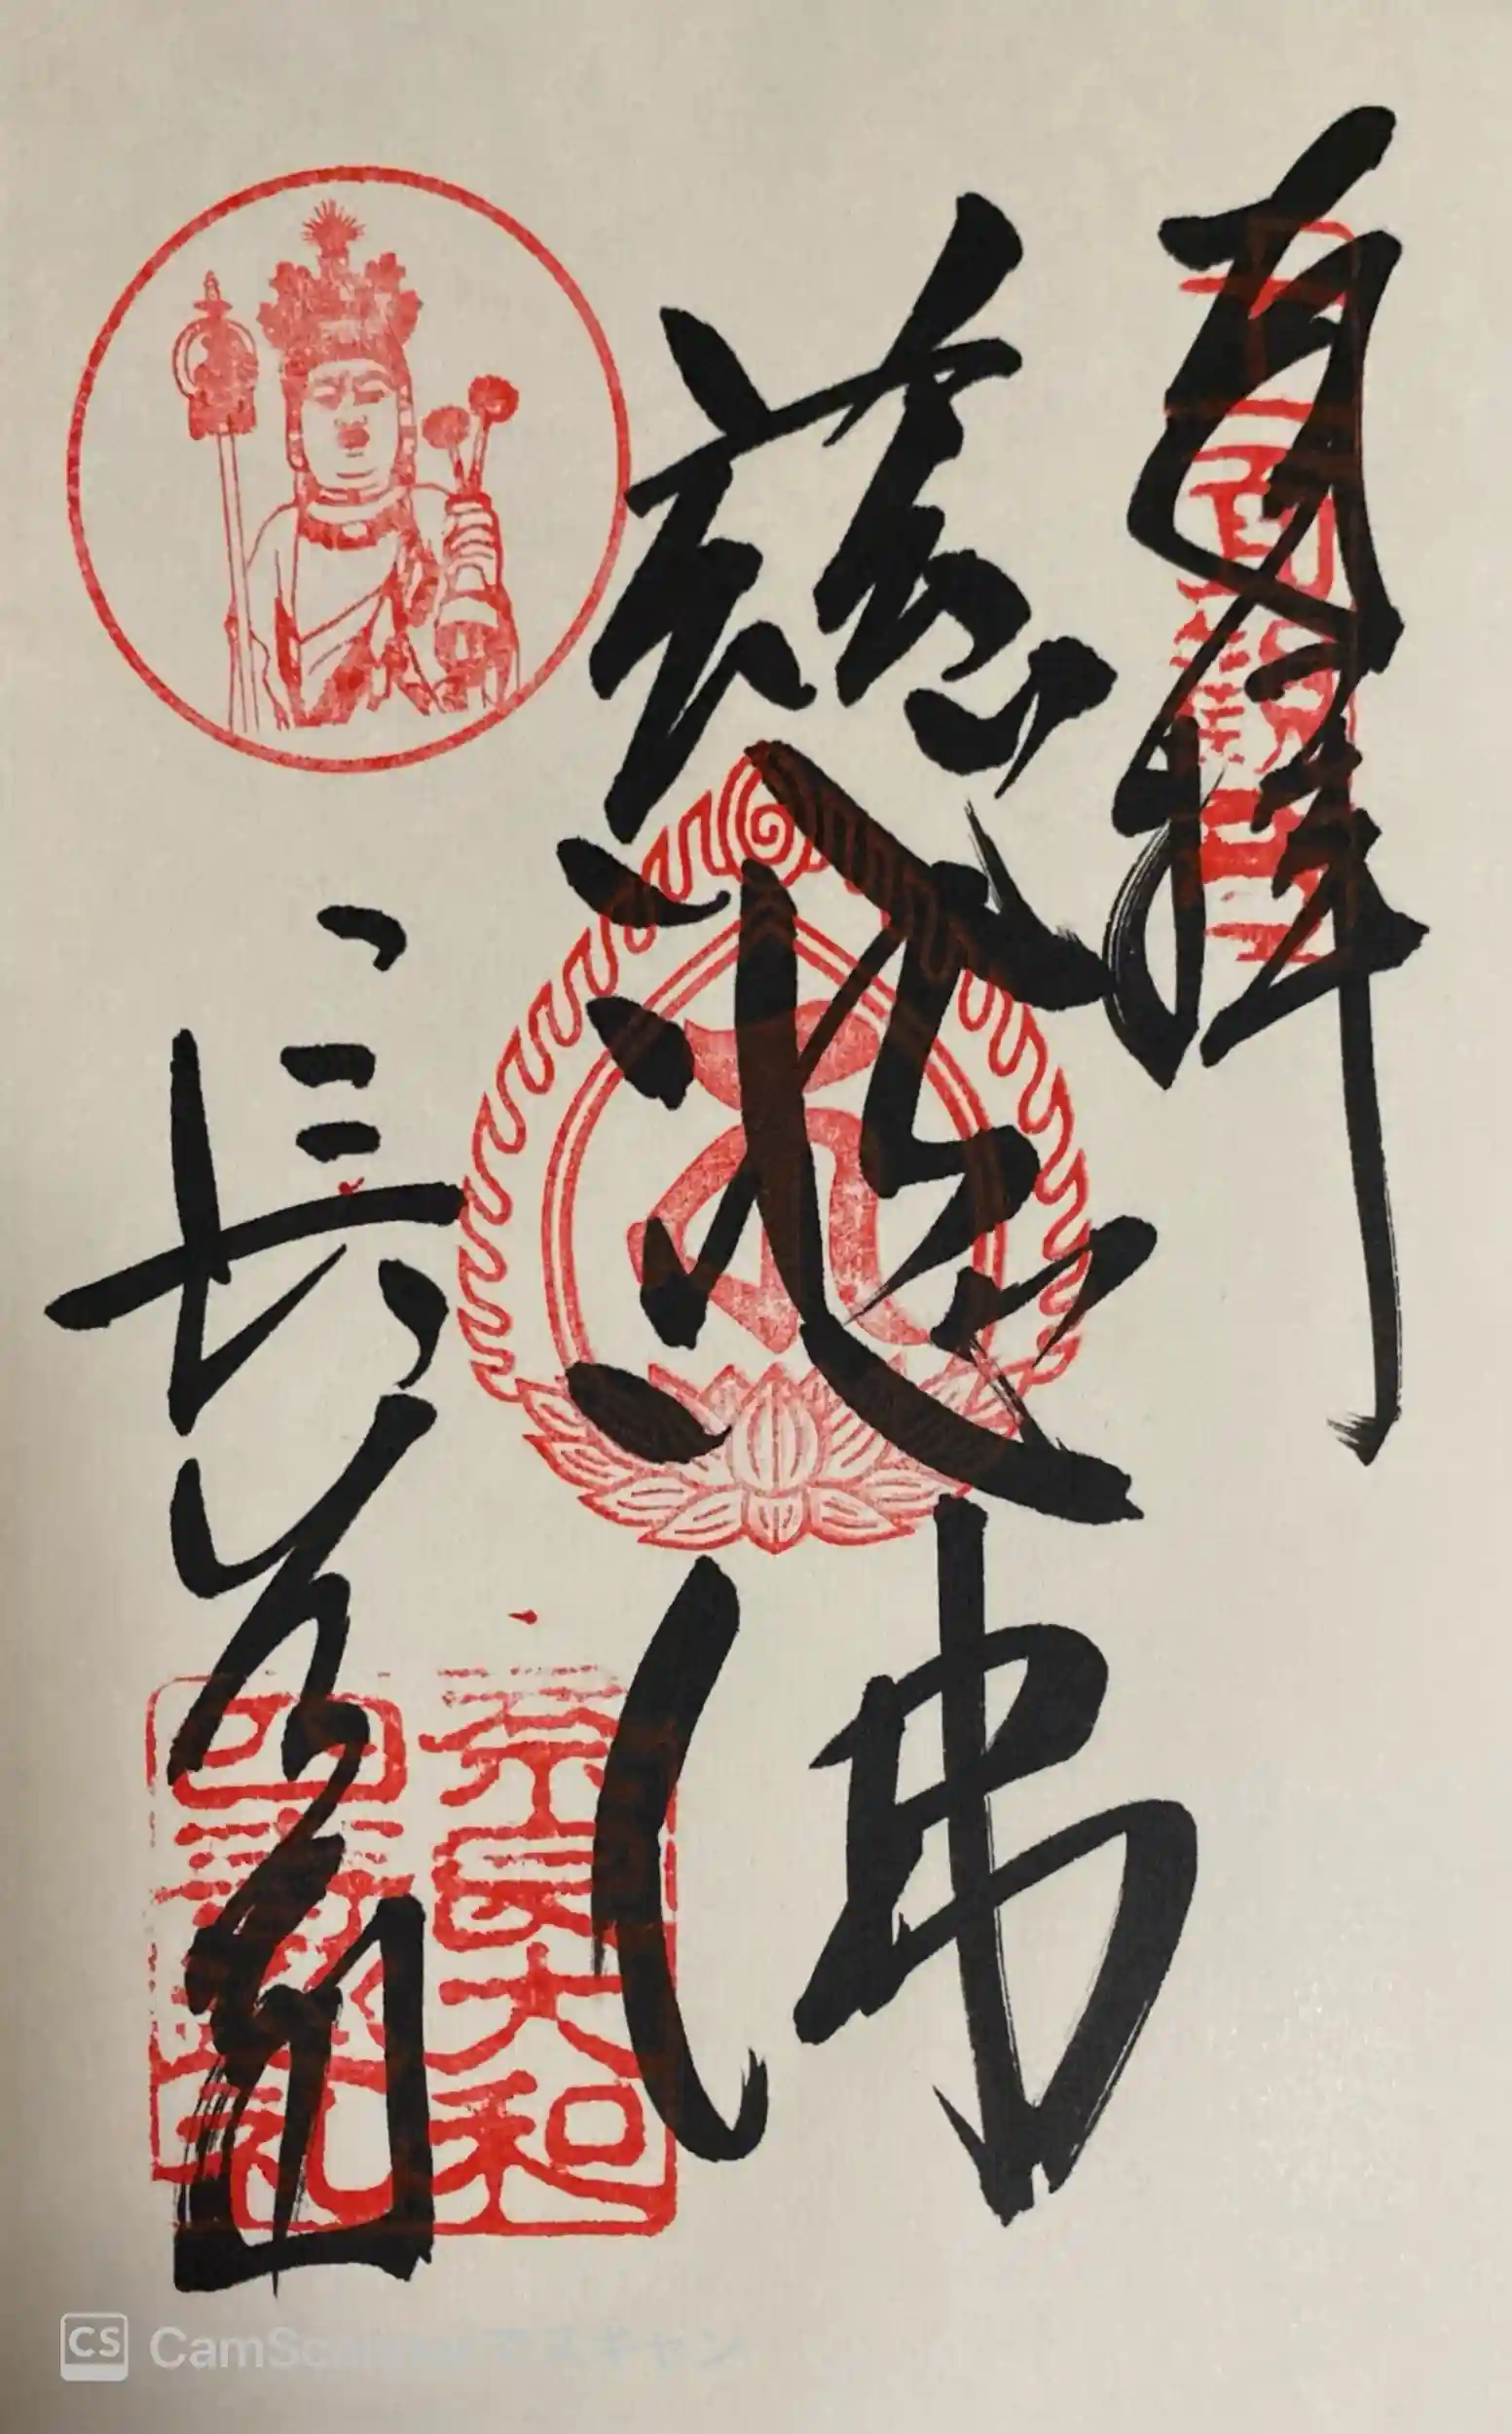 奉拝
慈悲佛
長谷寺
奈良大和
四寺巡礼
CS CamScanner でスキャン